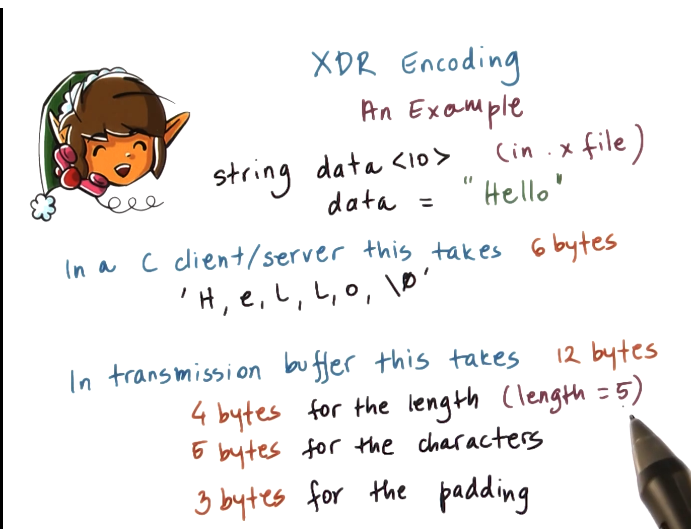 XDR Encoding
An Example
string data <10> (in .x file)
data = "Hello"
In a C client/server this takes 6 bytes
'H, e, L, L, o, \0'
In transmission buffer this takes 12 bytes
4 bytes for the length (length = 5)
5 bytes for the characters
3 bytes for the padding